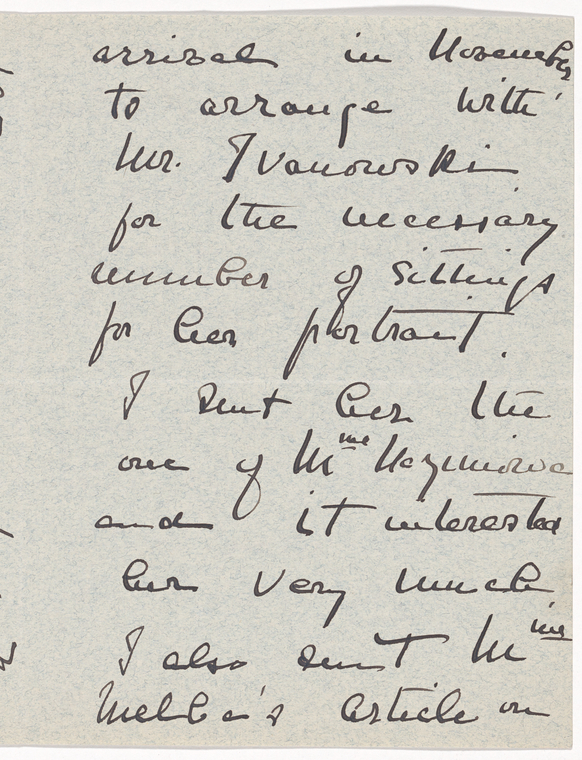 arrival in November
to arrange with
Mr. Ivanowski
for the necessary
number of sittings
for her portrait.
I sent her the
one of Mme Nazimova
and it interested
her very much.
I also sent Mme
Melba's article on